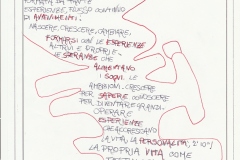 FORMATA DA TANTE
ESPERIENZE, SPESSO CONTINUO
DI AVVENIMENTI:
NASCERE, CRESCERE, CAMBIARE,
FORMARSI CON LE ESPERIENZE
ALTRUI E PROPRIE.
LE SPERANZE CHE
ALIMENTANO
I SOGNI. LE
AMBIZIONI. CRESCERE
PER SAPERE CONOSCERE
PER DIVENTARE GRANDI.
OPERARE
ESPERIENZE
CHE ACCRESCANO
LA VITA, LA PERSONALITÀ,
LA PROPRIA VITA COME